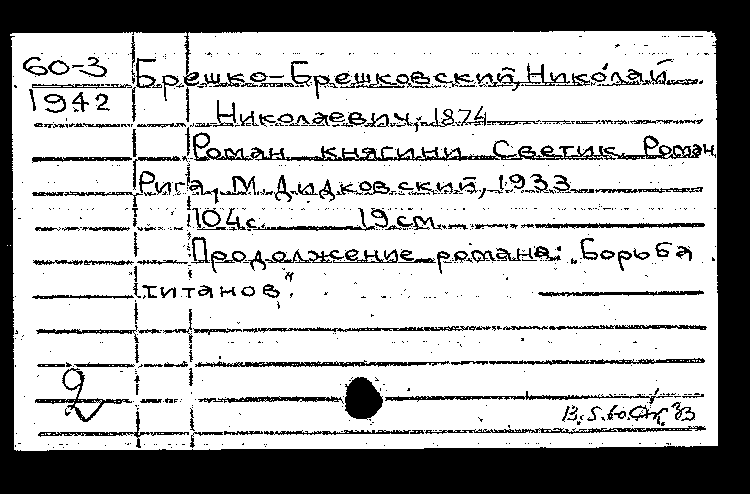 60-3 Брешко-Брешковский, Николай
1942 Николаевич, 1874
Роман княгини Светик. Роман
Рига, М. Дидковский, 1933
104 с. 19 см
Продолжение романа: „Борьба
титанов".
2